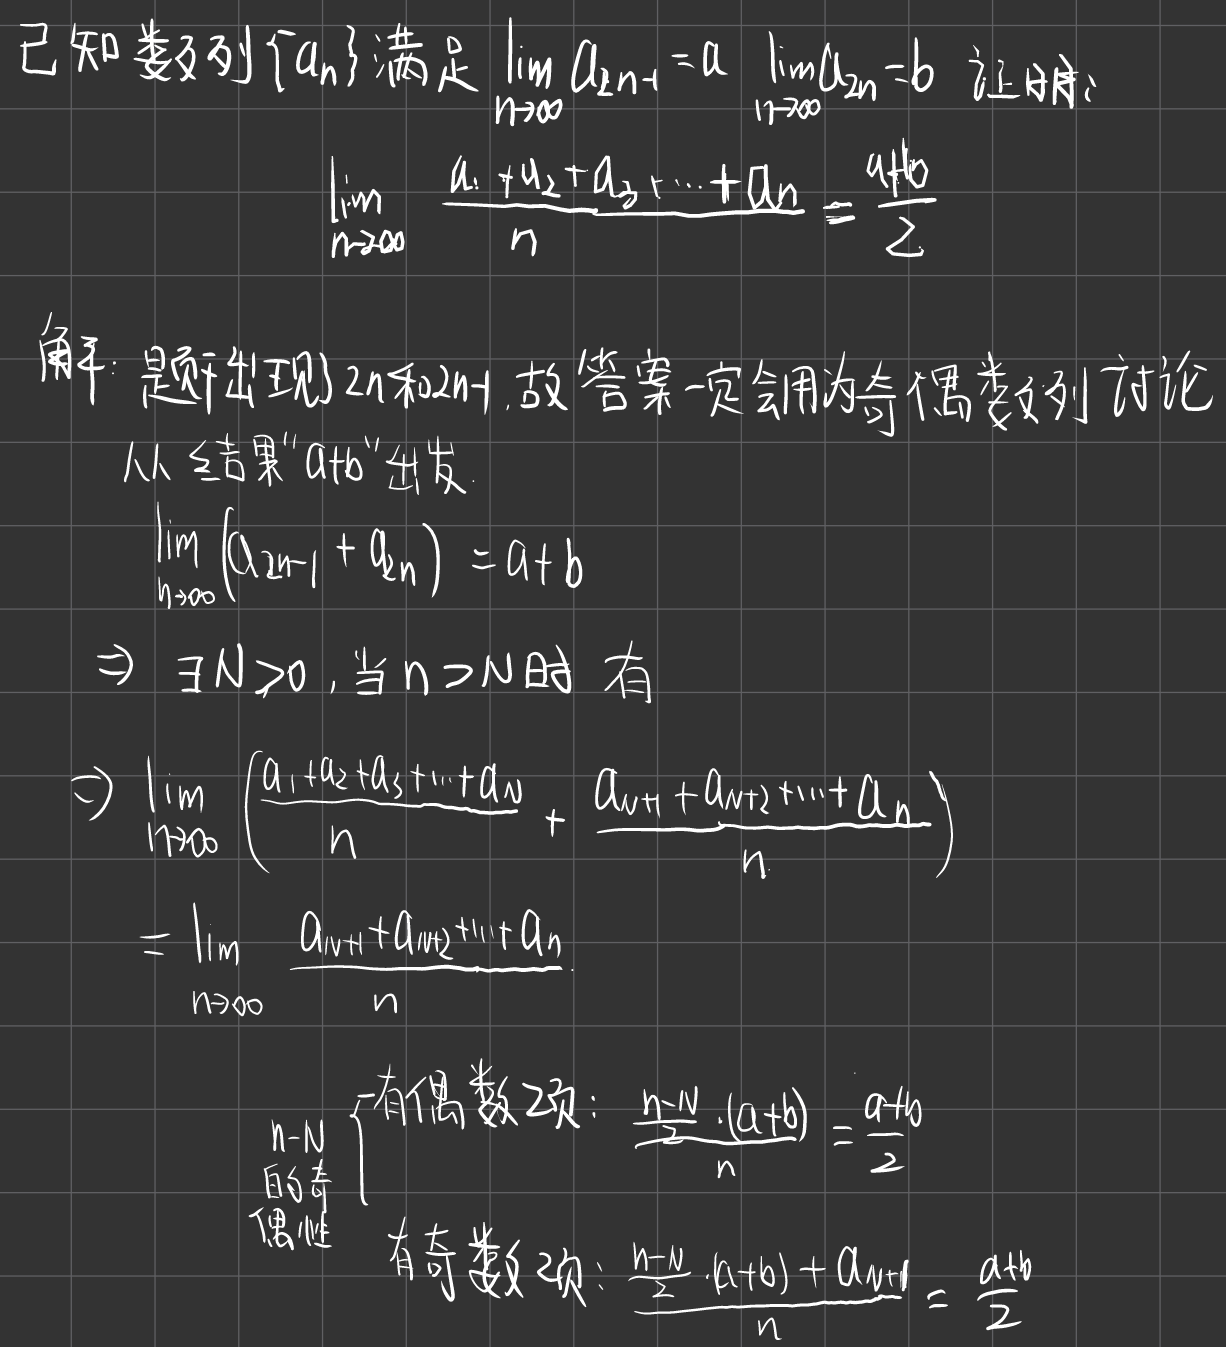 已知数列{aₙ}满足 lim_{n→∞} a_{2n-1} = a lim_{n→∞} a_{2n} = b 证明:
lim_{n→∞} (a₁+a₂+a₃+…+aₙ)/n = (a+b)/2
解: 题干出现了2n和2n-1,故答案一定会用为奇偶数列讨论
从结果"a+b"出发.
lim_{n→∞} (a_{2n-1} + a_{2n}) = a+b
⇒ ∃N>0,当n>N时 有
⇒ lim_{n→∞} ( (a₁+a₂+a₃+…+a_N)/n + (a_{N+1}+a_{N+2}+…+aₙ)/n )
= lim_{n→∞} (a_{N+1}+a_{N+2}+…+aₙ)/n
n-N的奇偶性
有偶数项: ((n-N)/2 ·(a+b))/n = (a+b)/2
有奇数项: ((n-N)/2 ·(a+b)+a_{N+1})/n = (a+b)/2